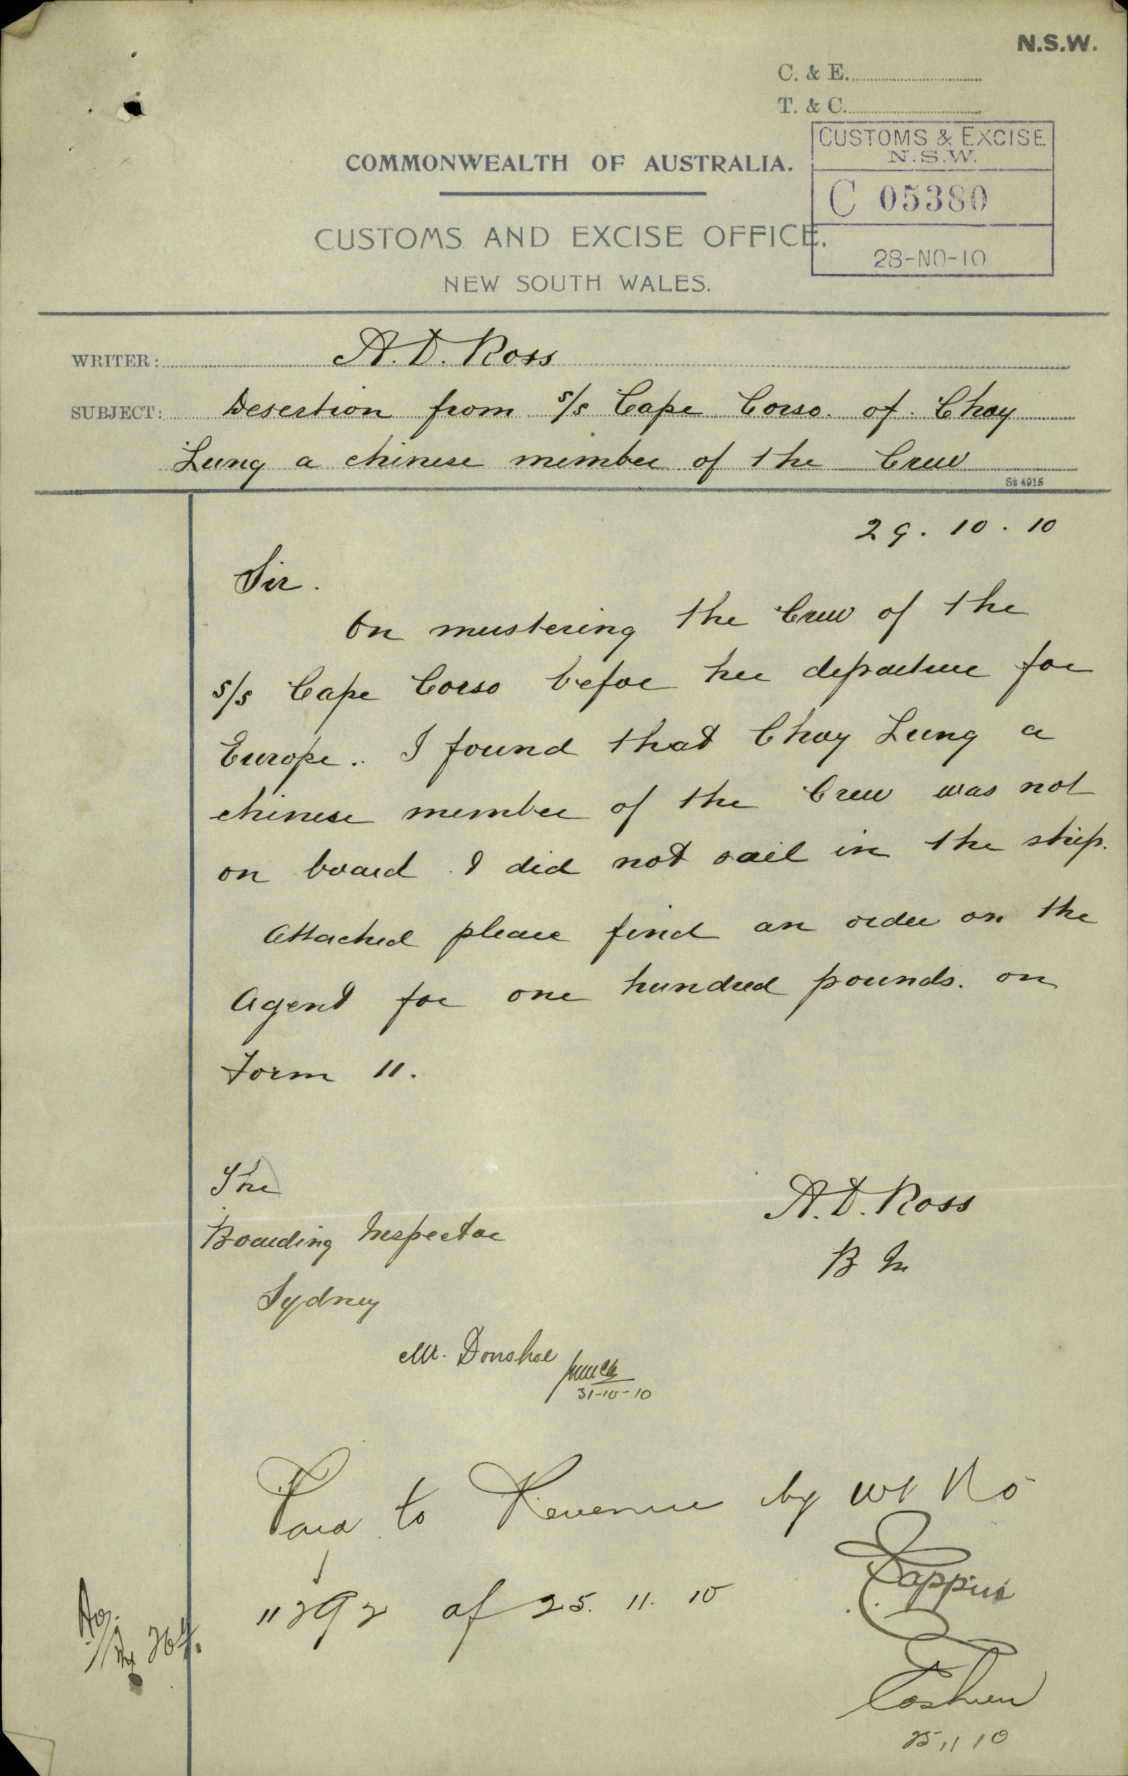 N.S.W.
C. & E.
T. & C.
CUSTOMS & EXCISE
N.S.W.
C 05380
28-NO-10
COMMONWEALTH OF AUSTRALIA.
CUSTOMS AND EXCISE OFFICE.
NEW SOUTH WALES.
WRITER: A. D. Ross
SUBJECT: Desertion from s/s Cape Corso. of Choy
Lung a chinese member of the Crew
St 4915
29. 10. 10
Sir.
On mustering the Crew of the
s/s Cape Corso befor her departure for
Europe. I found that Choy Lung a
chinese member of the Crew was not
on board & did not sail in the ship.
Attached please find an order on the
Agent for one hundred pounds. on
Form 11.
The
Boarding Inspector
Sydney
A. D. Ross
B In
Mr. Donohoe
31-10-10
Paid to Revenue by No
11292 of 25. 11. 10
Cashier
25 11 10
264.